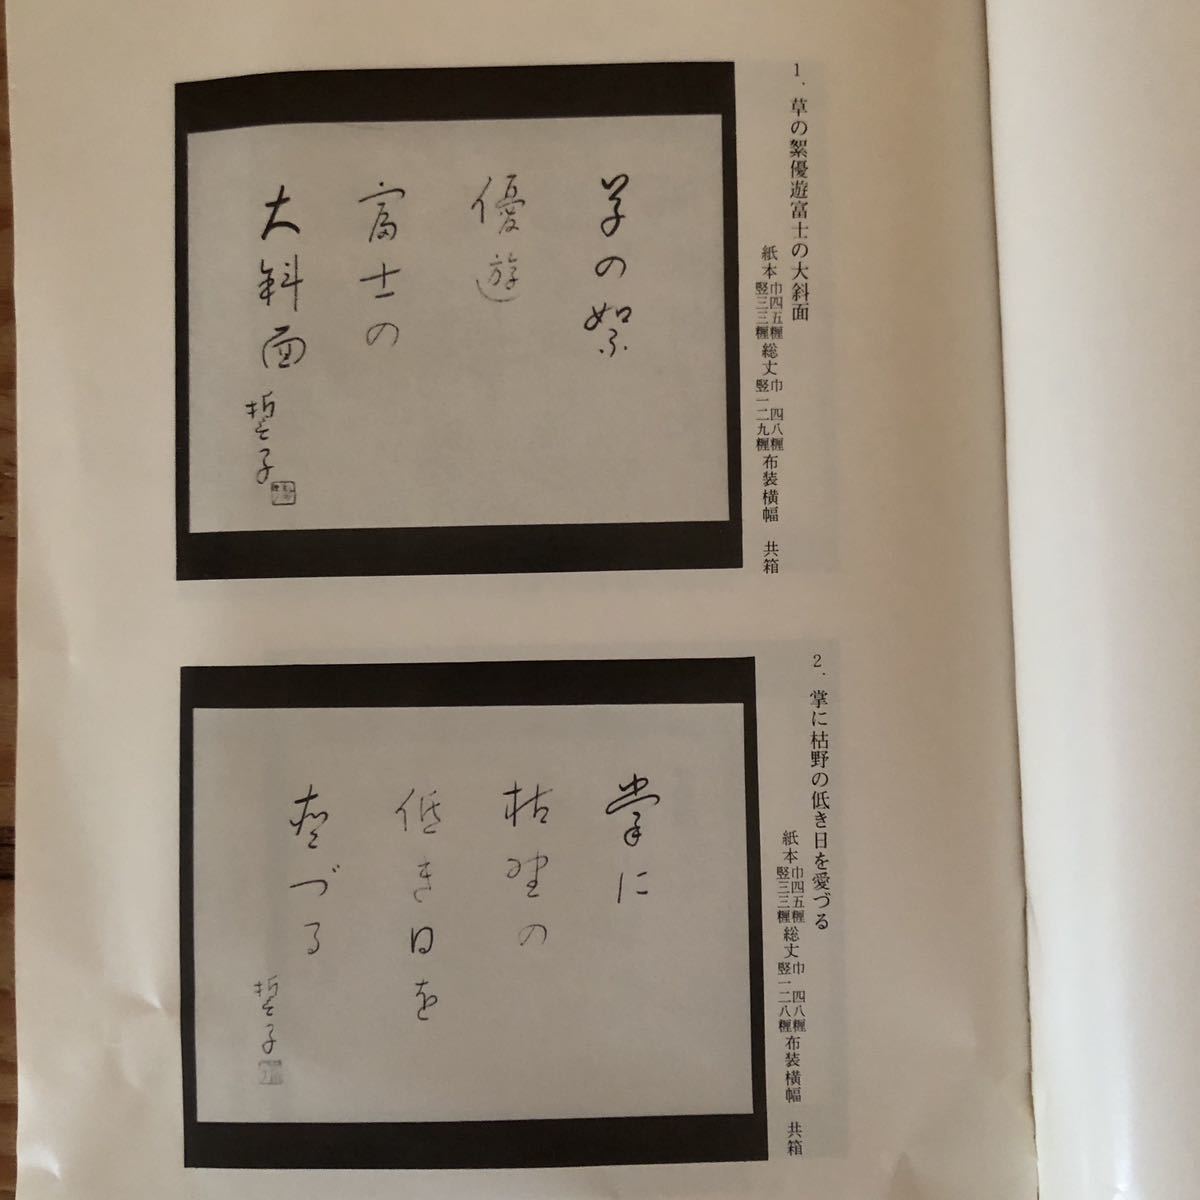 1. 草の絮優遊富士の大斜面
紙本 巾四五糎 竪三三糎 総丈 巾四八糎 竪一二九糎 布装横幅 共箱
草の絮
優遊
富士の
大斜面
哲子
2. 掌に枯野の低き日を愛づる
紙本 巾四五糎 竪三三糎 総丈 巾四八糎 竪一二八糎 布装横幅 共箱
掌に
枯野の
低き日を
愛づる
哲子